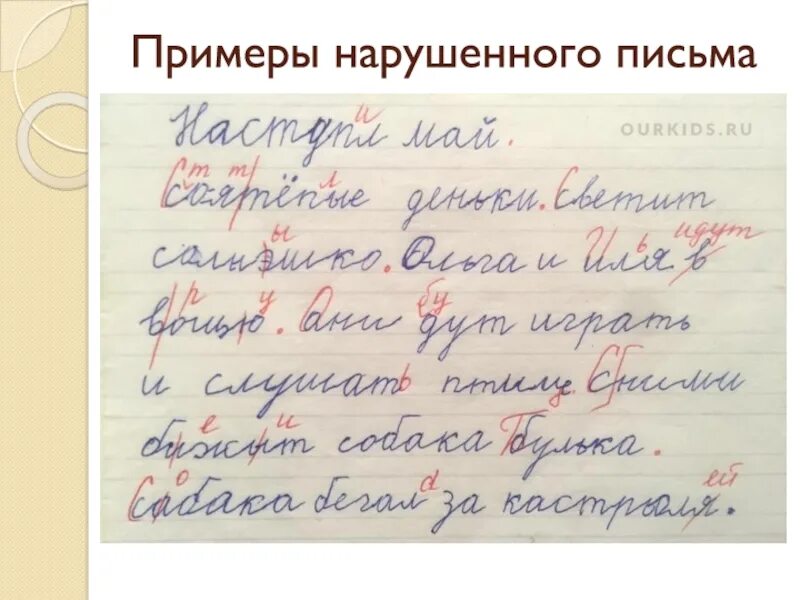 Примеры нарушенного письма
OURKIDS.RU
и
Наступл май.
т т л
Соятёпые деньки. Светит
ы ь идут
солнэшко. Ольга и Иля в
р у бу
вощю. Они дут играть
и слушать птицу. С ними
е и
бижыт собака Булька.
о а ей
Сабака бегал за кастрюля.